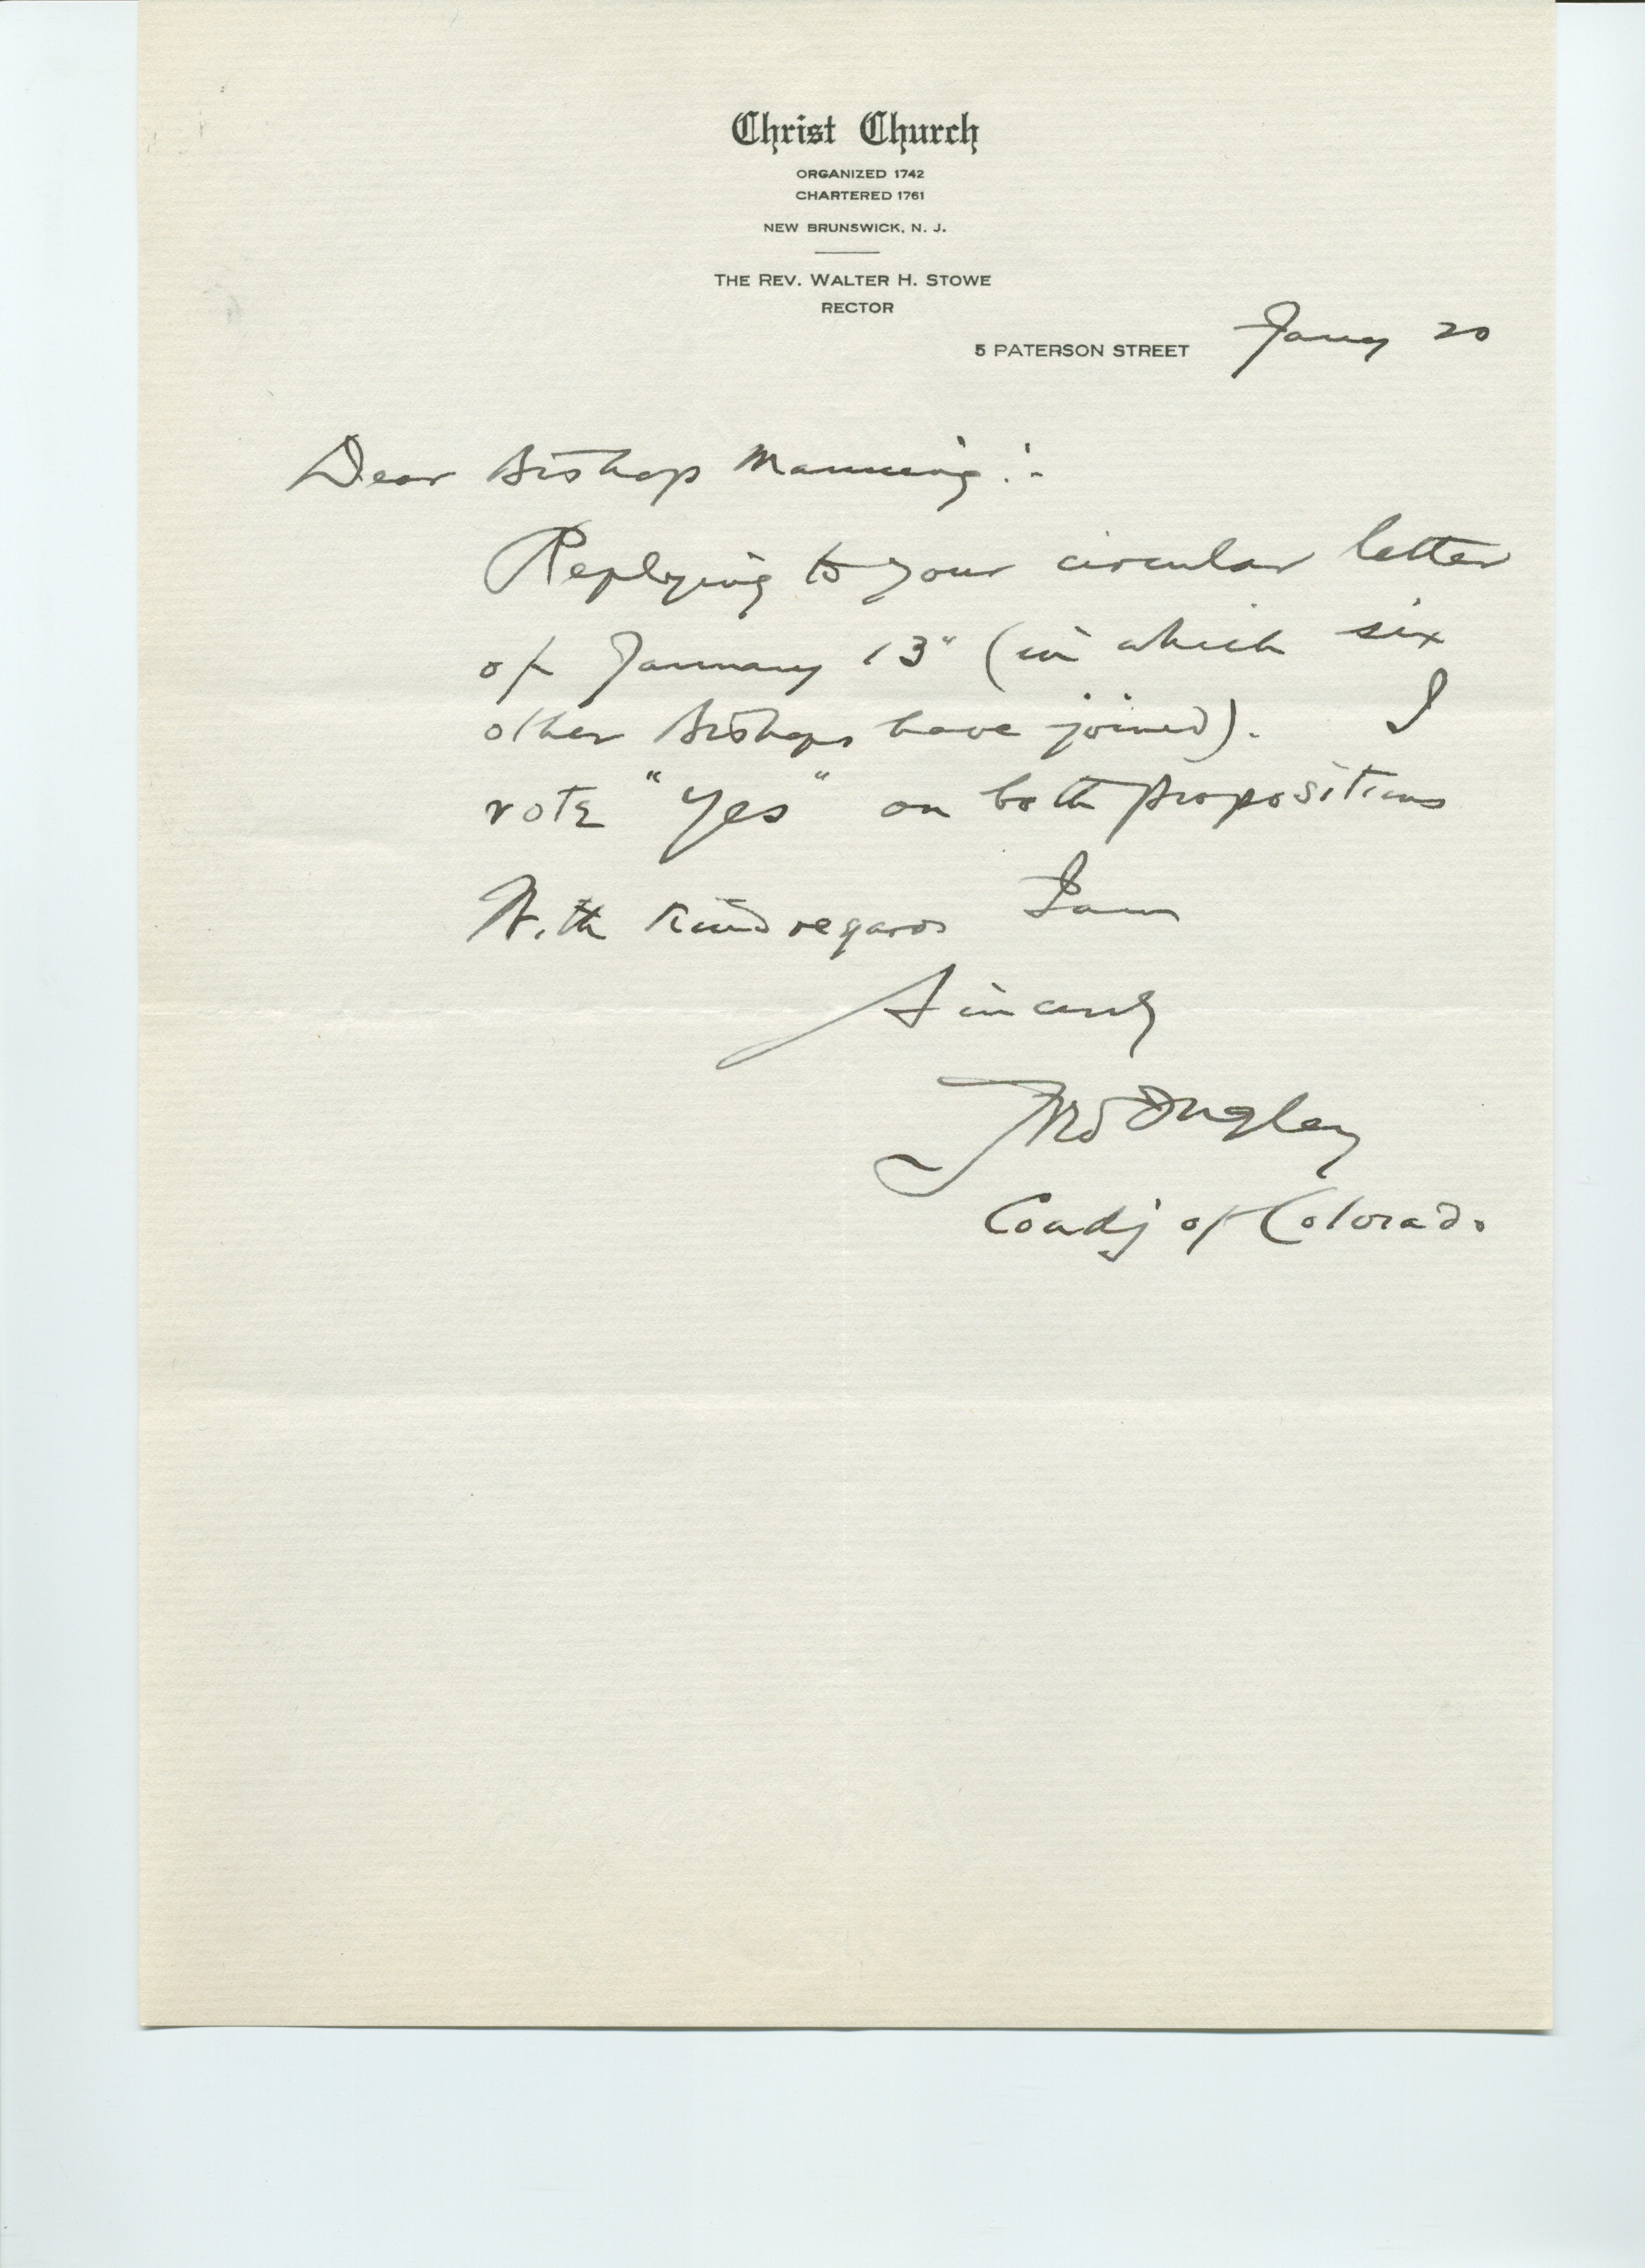 Christ Church
ORGANIZED 1742
CHARTERED 1761
NEW BRUNSWICK, N. J.
THE REV. WALTER H. STOWE
RECTOR
5 PATERSON STREET Jany 20
Dear Bishop Manning:-
Replying to your circular letter
of January 13" (in which six
other Bishops have joined). I
vote "Yes" on both propositions
With kind regards I am
Sincerely
Fred Ingley
Coadj of Colorado